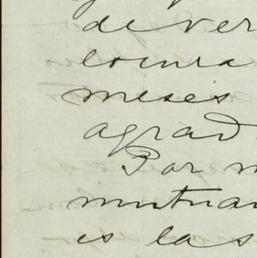 de ver
locura
meses
agrad
Por m
mutuam
es las